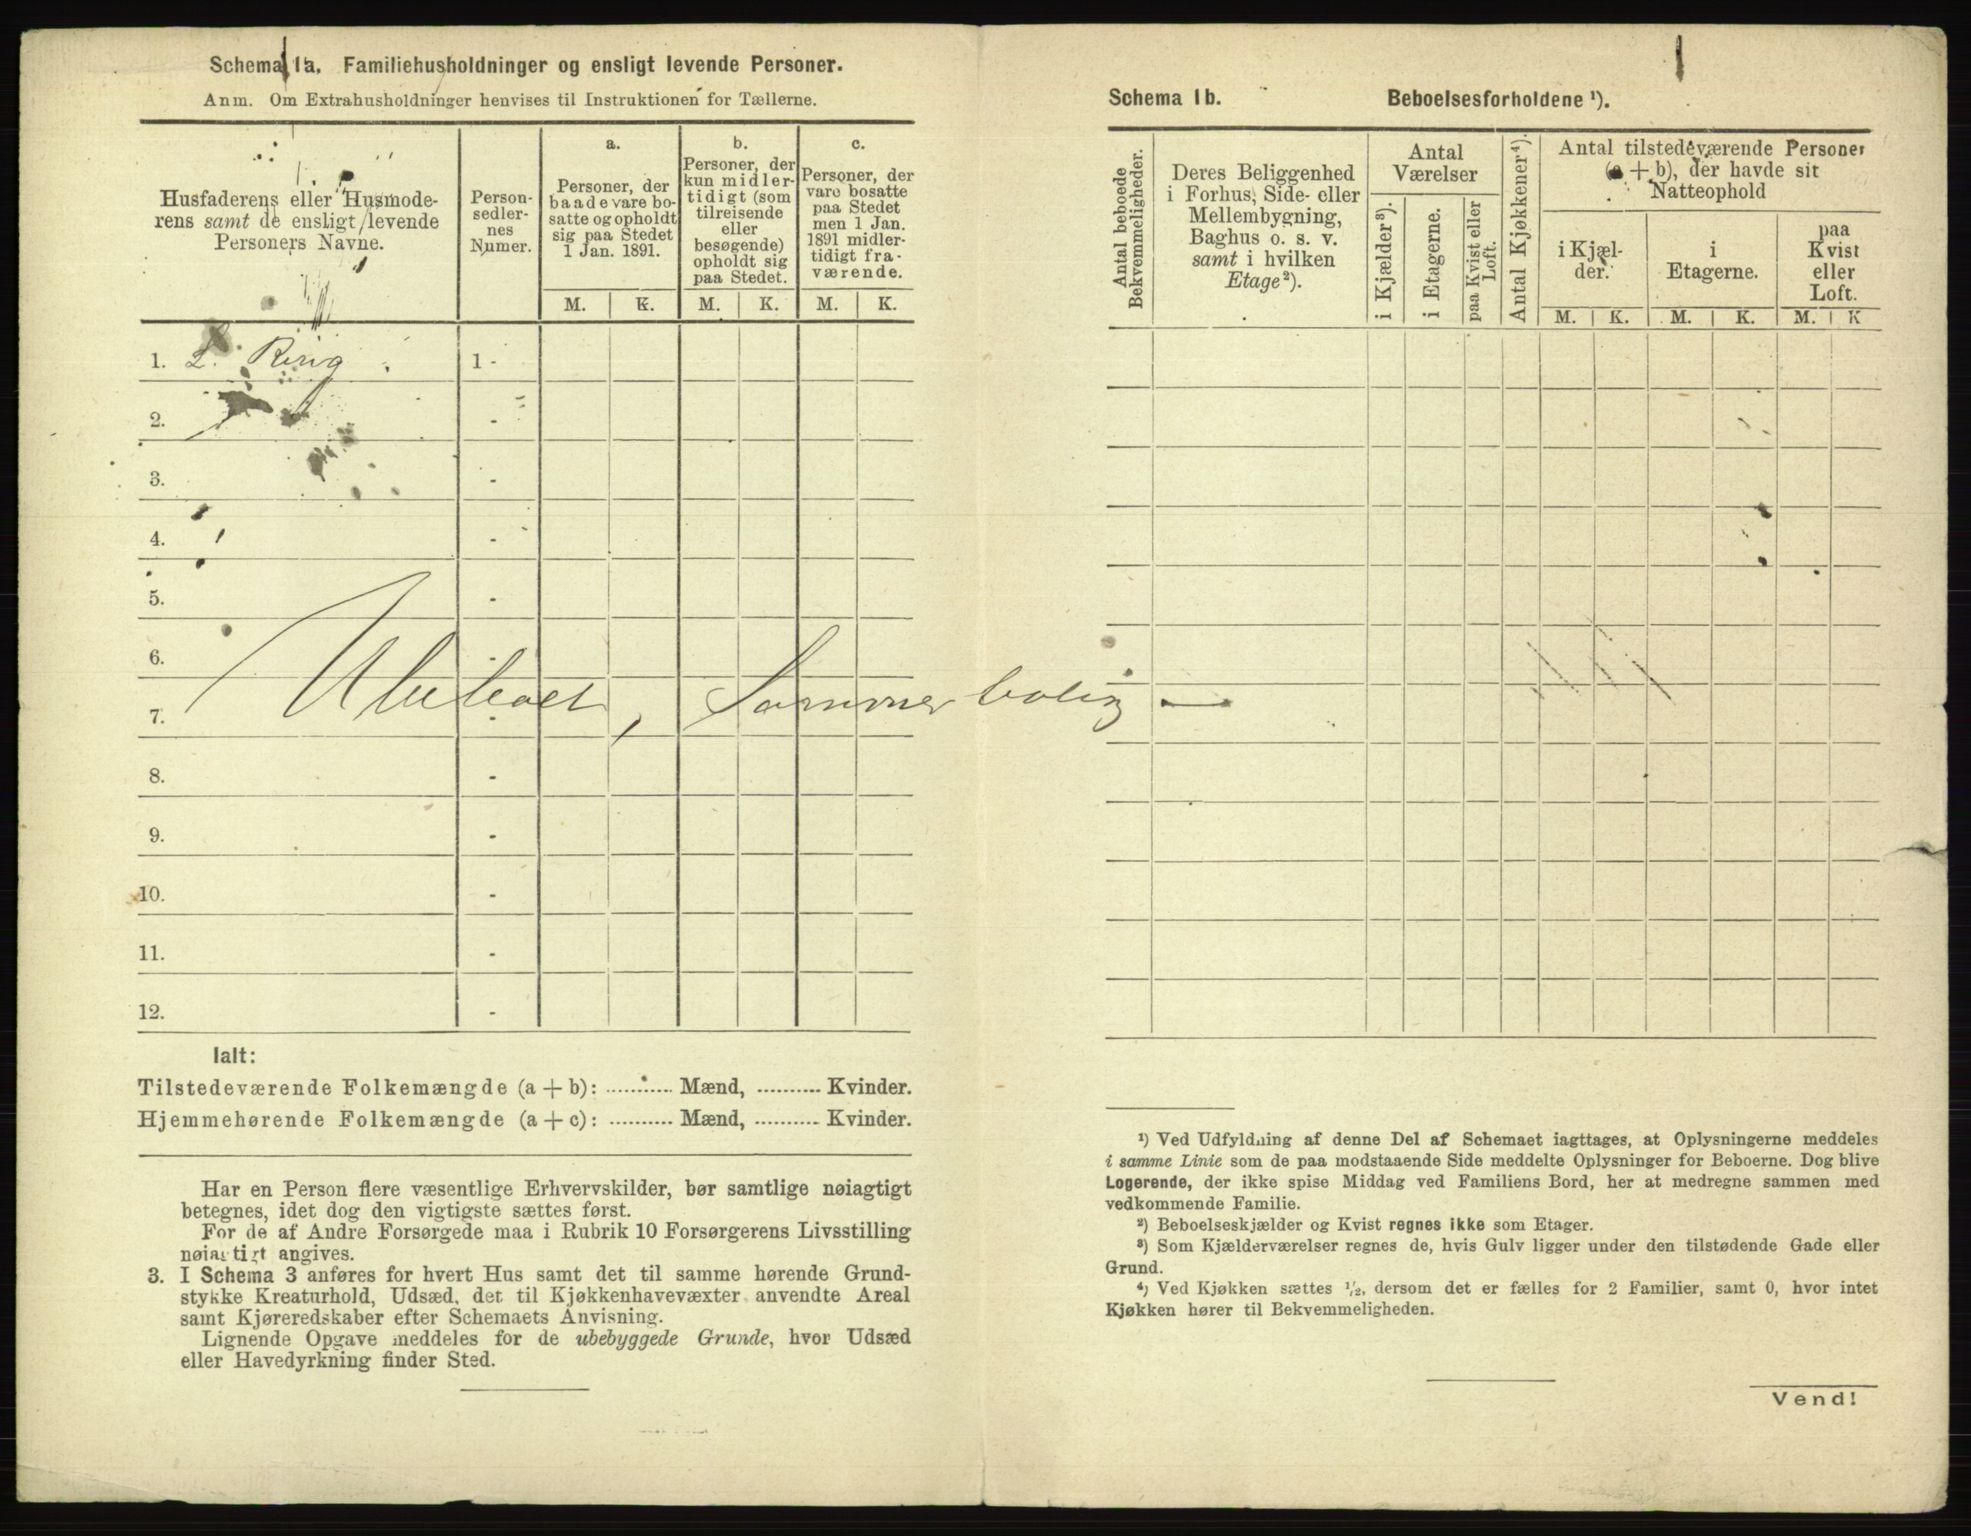 Schema 1a. Familiehusholdninger og ensligt levende Personer.
Anm. Om Extrahusholdninger henvises til Instruktionen for Tællerne.
Husfaderens eller Husmode-
rens samt de ensligt levende
Personers Navne.
Person-
sedler-
nes
Numer.
a.
Personer, der
baade vare bo-
satte og opholdt
sig paa Stedet
1 Jan. 1891.
b.
Personer, der
kun midler-
tidigt (som
tilreisende
eller
besøgende)
opholdt sig
paa Stedet.
c.
Personer, der
vare bosatte
paa Stedet
men 1 Jan.
1891 midler-
tidigt fra-
værende.
M. K. M. K. M. K.
1. L. Ring 1 -
2. -
3. -
4. -
5. -
6. -
7. -
Ubeboet, Sommerbolig —
8. -
9. -
10. -
11. -
12. -
Ialt:
Tilstedeværende Folkemængde (a + b): .......... Mænd, .......... Kvinder.
Hjemmehørende Folkemængde (a + c): .......... Mænd, .......... Kvinder.
Har en Person flere væsentlige Erhvervskilder, bør samtlige nøiagtigt
betegnes, idet dog den vigtigste sættes først.
For de af Andre Forsørgede maa i Rubrik 10 Forsørgerens Livsstilling
nøiagtigt angives.
3. I Schema 3 anføres for hvert Hus samt det til samme hørende Grund-
stykke Kreaturhold, Udsæd, det til Kjøkkenhavevæxter anvendte Areal
samt Kjøreredskaber efter Schemaets Anvisning.
Lignende Opgave meddeles for de ubebyggede Grunde, hvor Udsæd
eller Havedyrkning finder Sted.
Schema 1b. Beboelsesforholdene ¹).
Antal beboede
Bekvemmeligheder.
Deres Beliggenhed
i Forhus, Side- eller
Mellembygning,
Baghus o. s. v.
samt i hvilken
Etage²).
Antal
Værelser
i Kjælder³).
i Etagerne.
paa Kvist eller
Loft.
Antal Kjøkkener⁴).
Antal tilstedeværende Personer
(a + b), der havde sit
Natteophold
i Kjæl-
der.
i
Etagerne.
paa
Kvist
eller
Loft.
M. K. M. K. M. K
¹) Ved Udfyldning af denne Del af Schemaet iagttages, at Oplysningerne meddeles
i samme Linie som de paa modstaaende Side meddelte Oplysninger for Beboerne. Dog blive
Logerende, der ikke spise Middag ved Familiens Bord, her at medregne sammen med
vedkommende Familie.
²) Beboelseskjælder og Kvist regnes ikke som Etager.
³) Som Kjælderværelser regnes de, hvis Gulv ligger under den tilstødende Gade eller
Grund.
⁴) Ved Kjøkken sættes ¹/₂, dersom det er fælles for 2 Familier, samt 0, hvor intet
Kjøkken hører til Bekvemmeligheden.
Vend!